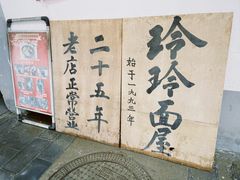 玲玲面屋
始于一九九三年
二十五年
老店正常营业